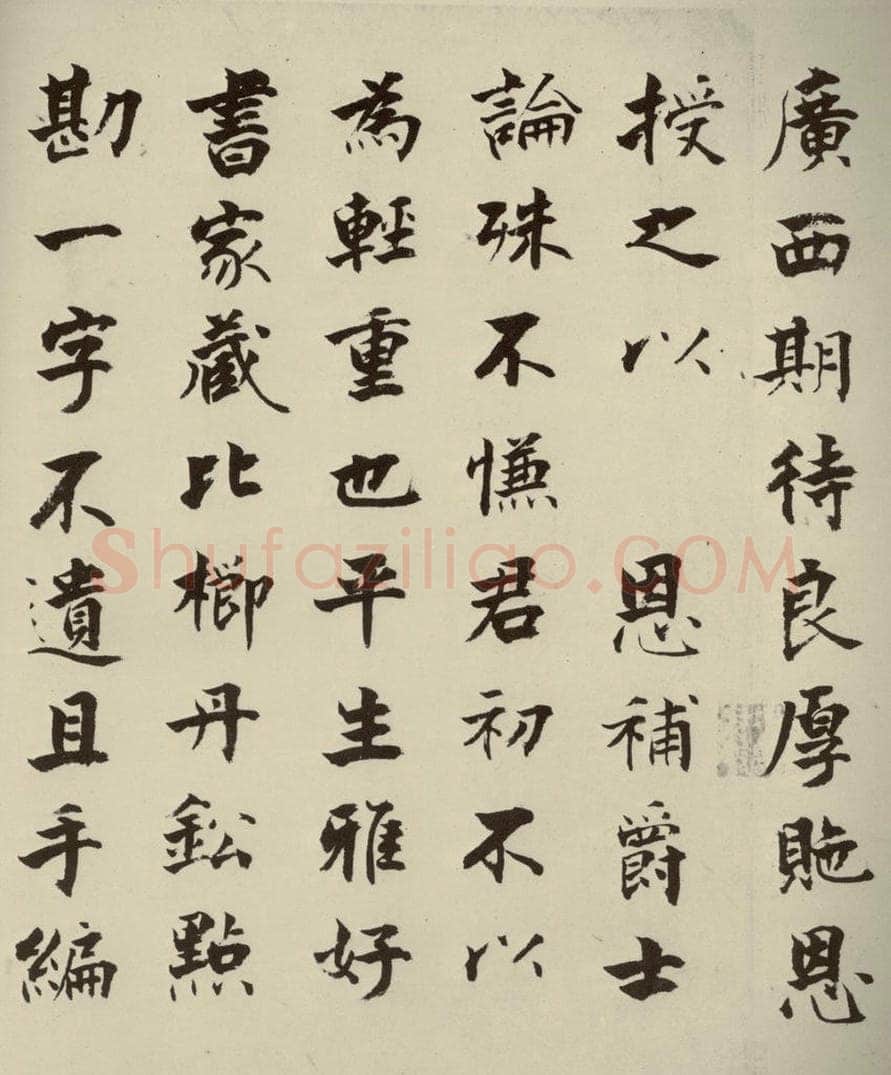 廣西期待良厚貤恩
授之以 恩補爵士
論殊不慊君初不以
為輕重也平生雅好
書家藏比櫛丹鈆點
勘一字不遺且手編
Shufaziliao.COM